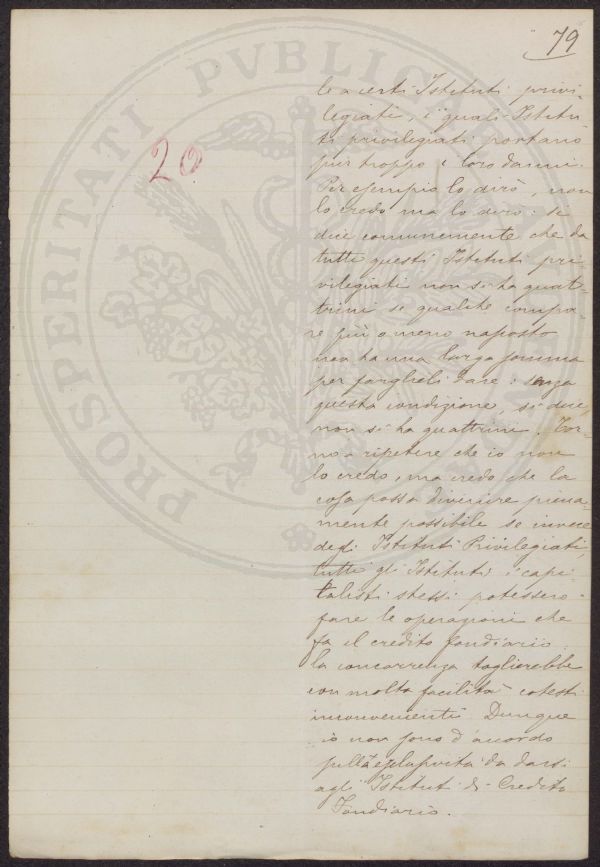 79
20
le a certi Istituti privi-
legiati, i quali Istitu
ti privilegiati portano
pur troppo i loro danni.
Per esempio lo dirò, non
lo credo ma lo dirò: si
dice comunemente che da
tutti questi Istituti pri-
vilegiati non si ha quat-
trini se qualche compa-
re più o meno nascosto
non ha una larga somma
per farglieli dare; senza
questa condizione, si dice,
non si ha quattrini. Tor-
no a ripetere che io non
lo credo, ma credo che la
cosa possa divenire piena-
mente possibile se invece
degli Istituti Privilegiati,
tutti gli Istituti, i capi
talisti stessi potessero
fare le operazioni che
fa il credito fondiario
la concorrenza toglierebbe
con molta facilità cotesti
inconvenienti. Dunque
io non sono d'accordo
sulla da darsi
agli Istituti di Credito
Fondiario.
PROSPERITATI PVBLICAE